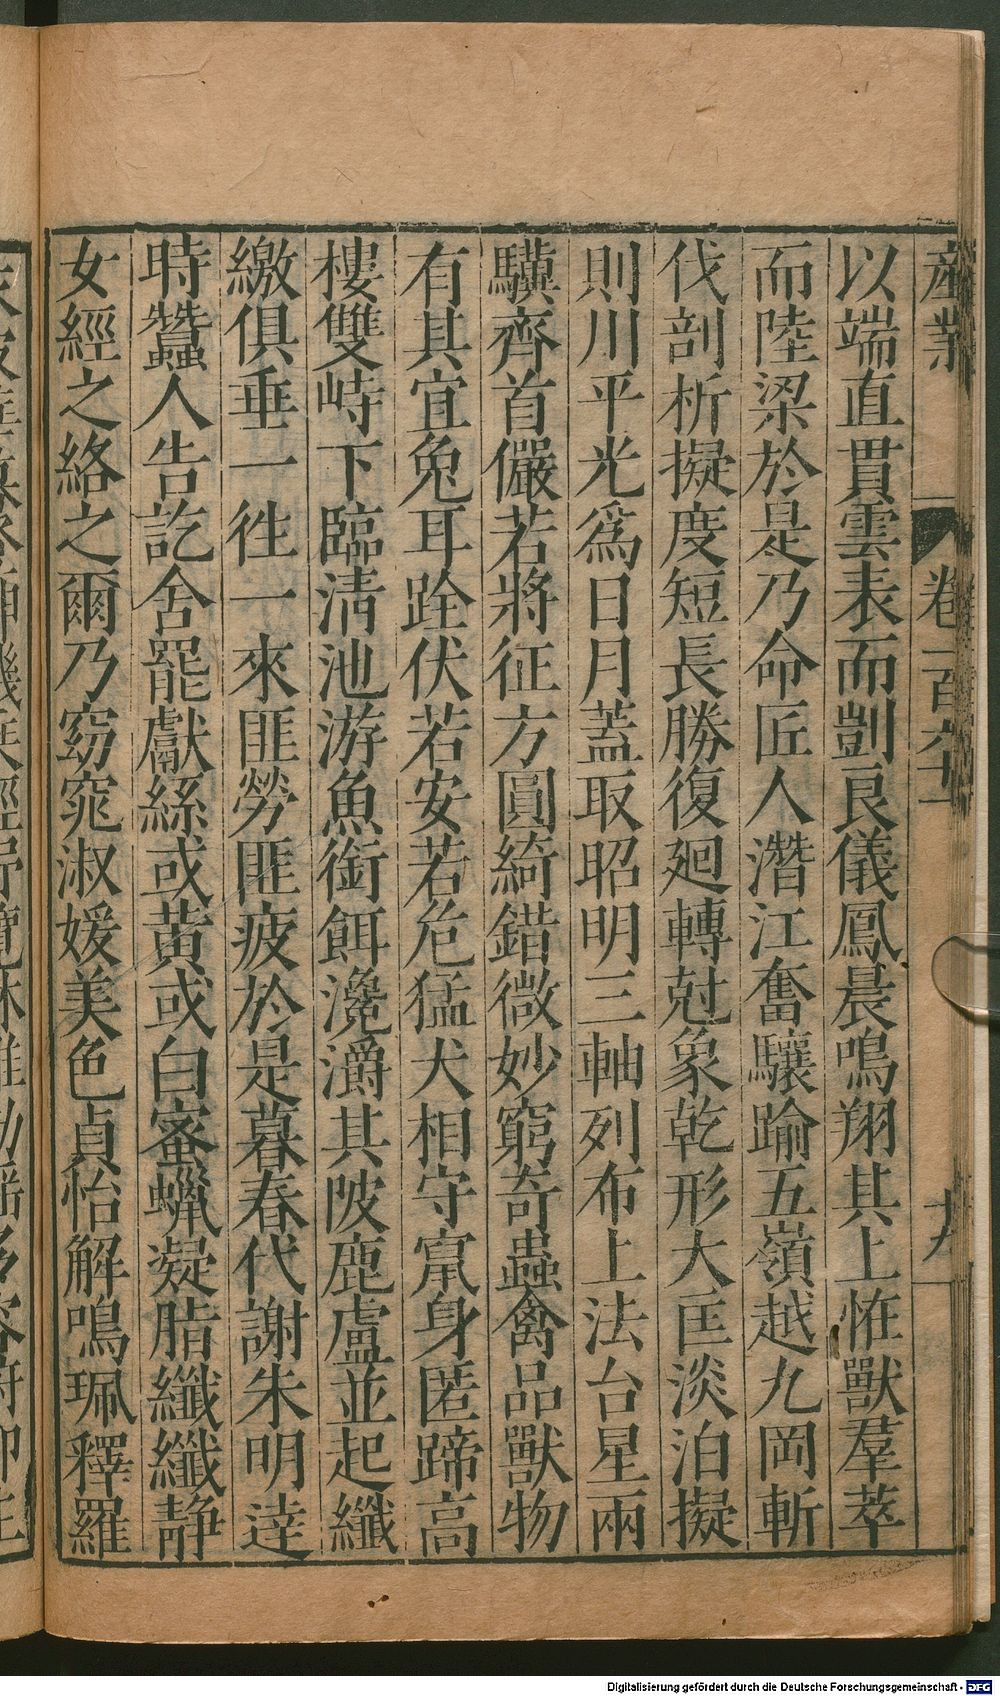 產業 卷一百六十一 十九
以端直貫雲表而剴良儀鳳晨鳴翔其上恠獸羣萃
而陸梁於是乃命匠人潛江奮驤踰五嶺越九岡斬
伐剖析擬度短長勝復廻轉尅象乾形大匡淡泊擬
則川平光爲日月蓋取昭明三軸列布上法台星兩
驥齊首儼若將征方圓綺錯微妙窮奇蟲禽品獸物
有其宜兔耳跧伏若安若危猛犬相守竄身匿蹄高
樓雙峙下臨清池游魚銜餌瀺灂其陂鹿盧並起纖
繳俱垂一徃一來匪勞匪疲於是暮春代謝朱明逹
時蠶人告訖舍罷獻絲或黃或白蜜蠟凝脂纖纖靜
女經之絡之爾乃窈窕淑媛美色貞怡解鳴珮釋羅